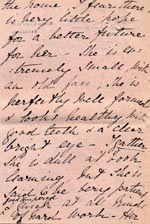 the home I fear there
is very little hope
of a better future
for her – She is ex-
tremely small with
an old face. She is
perfectly well formed
& looks healthy with
good teeth & a clear
bright eye –
She is dull at book
learning but She is
said to be very
at all kinds
of hard work – Her